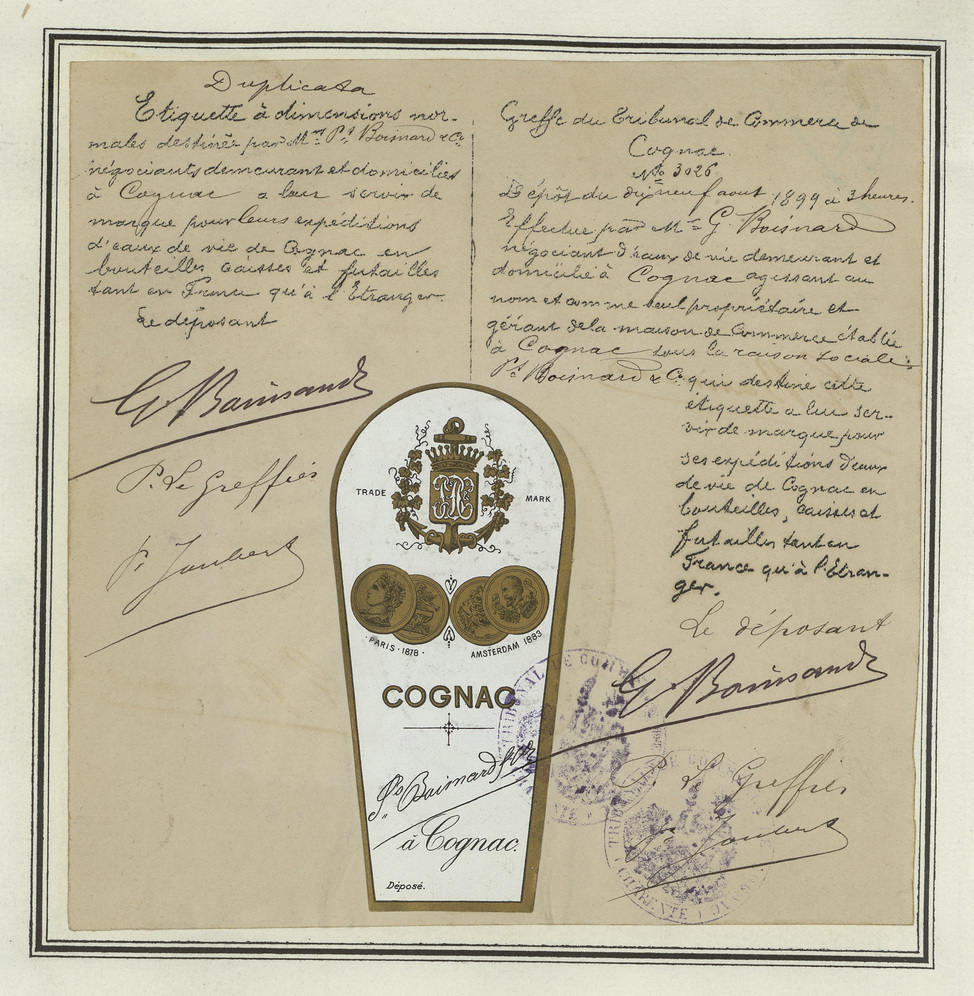 Duplicata
Etiquette à dimensions nor-
males destinée par MM Ps Boisnard & Co
négociants demeurant et domiciliés
à Cognac a leur servir de
marque pour leurs expéditions
d'eaux de vie de Cognac en
bouteilles caisses et futailles
tant en France qu'à l'Etranger.
Le déposant
G Boisnard
P. Le Greffier
P Joubert
Greffe du Tribunal de Commerce de
Cognac.
No 3026
Dépôt du dix neuf aout 1899 à 3 heures.
Effectué par Mr G. Boisnard
négociant d'eaux de vie demeurant et
domicilié à Cognac agissant au
nom et comme seul propriétaire et
gérant de la maison de Commerce établie
à Cognac sous la raison sociale:
Ps Boisnard & Co qui destine cette
étiquette a lui ser-
vir de marque pour
ses expéditions d'eaux
de vie de Cognac en
bouteilles, caisses et
futailles tant en
France qu'à l'Etran-
ger.
Le déposant
G Boisnard
P. Le Greffier
P Joubert
TRADE MARK
PARIS · 1878 ·
AMSTERDAM 1883
COGNAC
Ps Boisnard & Co
à Cognac.
Déposé.
TRIBUNAL DE COMM
TRIBUNAL DE COMM
CHARENTE